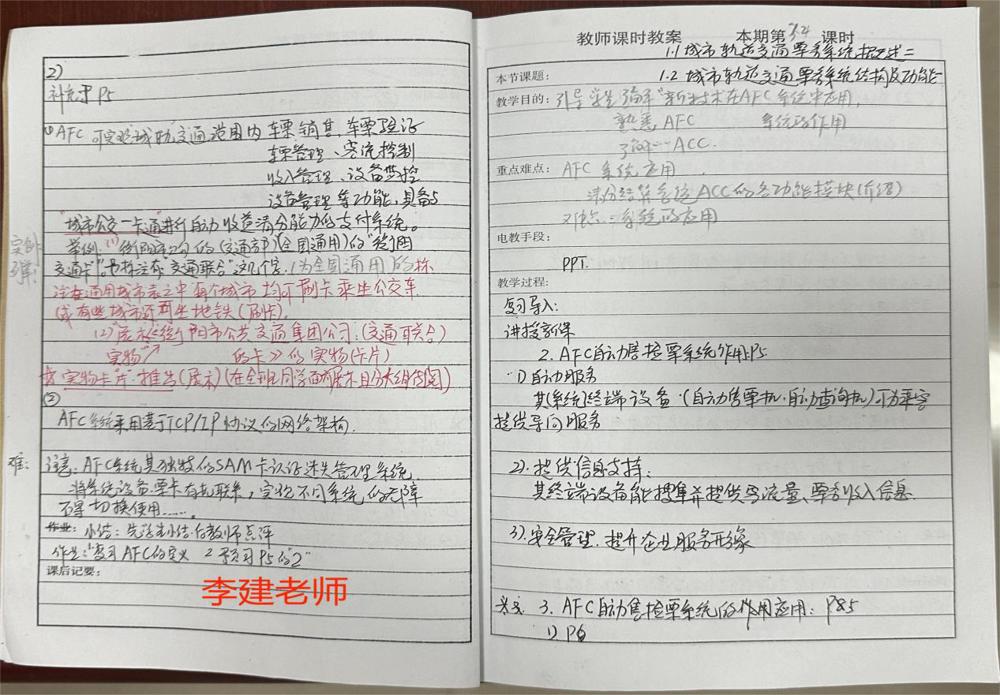 2)
补充于P5
①AFC 可实现城轨交通范围内 车票销售、车票验证
车票管理、客流控制
收入管理、设备监控
设备管理等功能,具备与
"城市公交一卡通"进行自动收益清分能力的支付系统。
实例
举例:(1)
(交通部)(全国通用)的
交通卡
"交通联合"这几个字,(为全国通用)的标
注在通用城市表之中每个城市均可刷卡乘坐公交车
或有些城市还可坐地铁(刷卡)。
(2)展示《衡阳市公共交通集团公司:(交通联合)
实物 的卡》的实物(卡片)
"实物卡片"推告(展示)(在全班同学面前展示且分大组传阅)
②
AFC系统采用基于TCP/IP协议的网络架构.
难:
注意:AFC系统其独特的SAM卡认证
管理系统,
将系统设备、票卡有机联系,实现不同系统的无障
切换使用……
作业: 小结:先学生小结后教师点评
作业:"复习AFC的定义 2 预习P5的"2"
课后记要:
李建老师
教师课时教案 本期第3.4课时
1.1 城市轨道交通票务系统概述二
本节课题: 1.2 城市轨道交通票务系统结构及功能
教学目的: 引导学生
"新技术在AFC系统中应用,
熟悉AFC 系统的作用
了解……ACC.
重点难点: AFC系统应用
清分结算系统ACC的各功能模块(介绍)
系统的应用
电教手段:
PPT.
教学过程:
复习导入:
讲授新课
2. AFC自动售检票系统作用P5
1)自动服务
其(系统)终端设备·(自动售票机·自动查询机)可为乘客
提供导向服务
2). 提供信息支持:
其终端设备能搜集并提供客流量、票务收入信息.
3).安全管理.提升企业服务形象
3. AFC自动售检票系统的作用应用: P85
1) P6